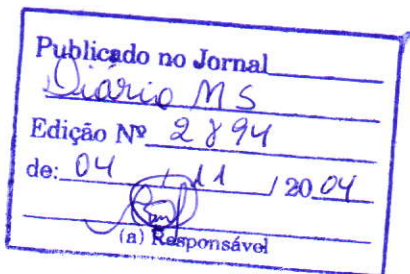 Publicado no Jornal
Diário MS
Edição Nº 2894
de: 04 / 11 / 2004
(a) Responsável